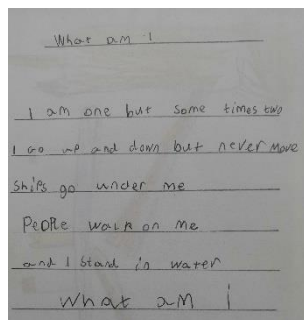 What am i
I am one but some times two
I go up and down but never move
Ships go under me
PeoPle walk on me
and I stand in water
What aM i